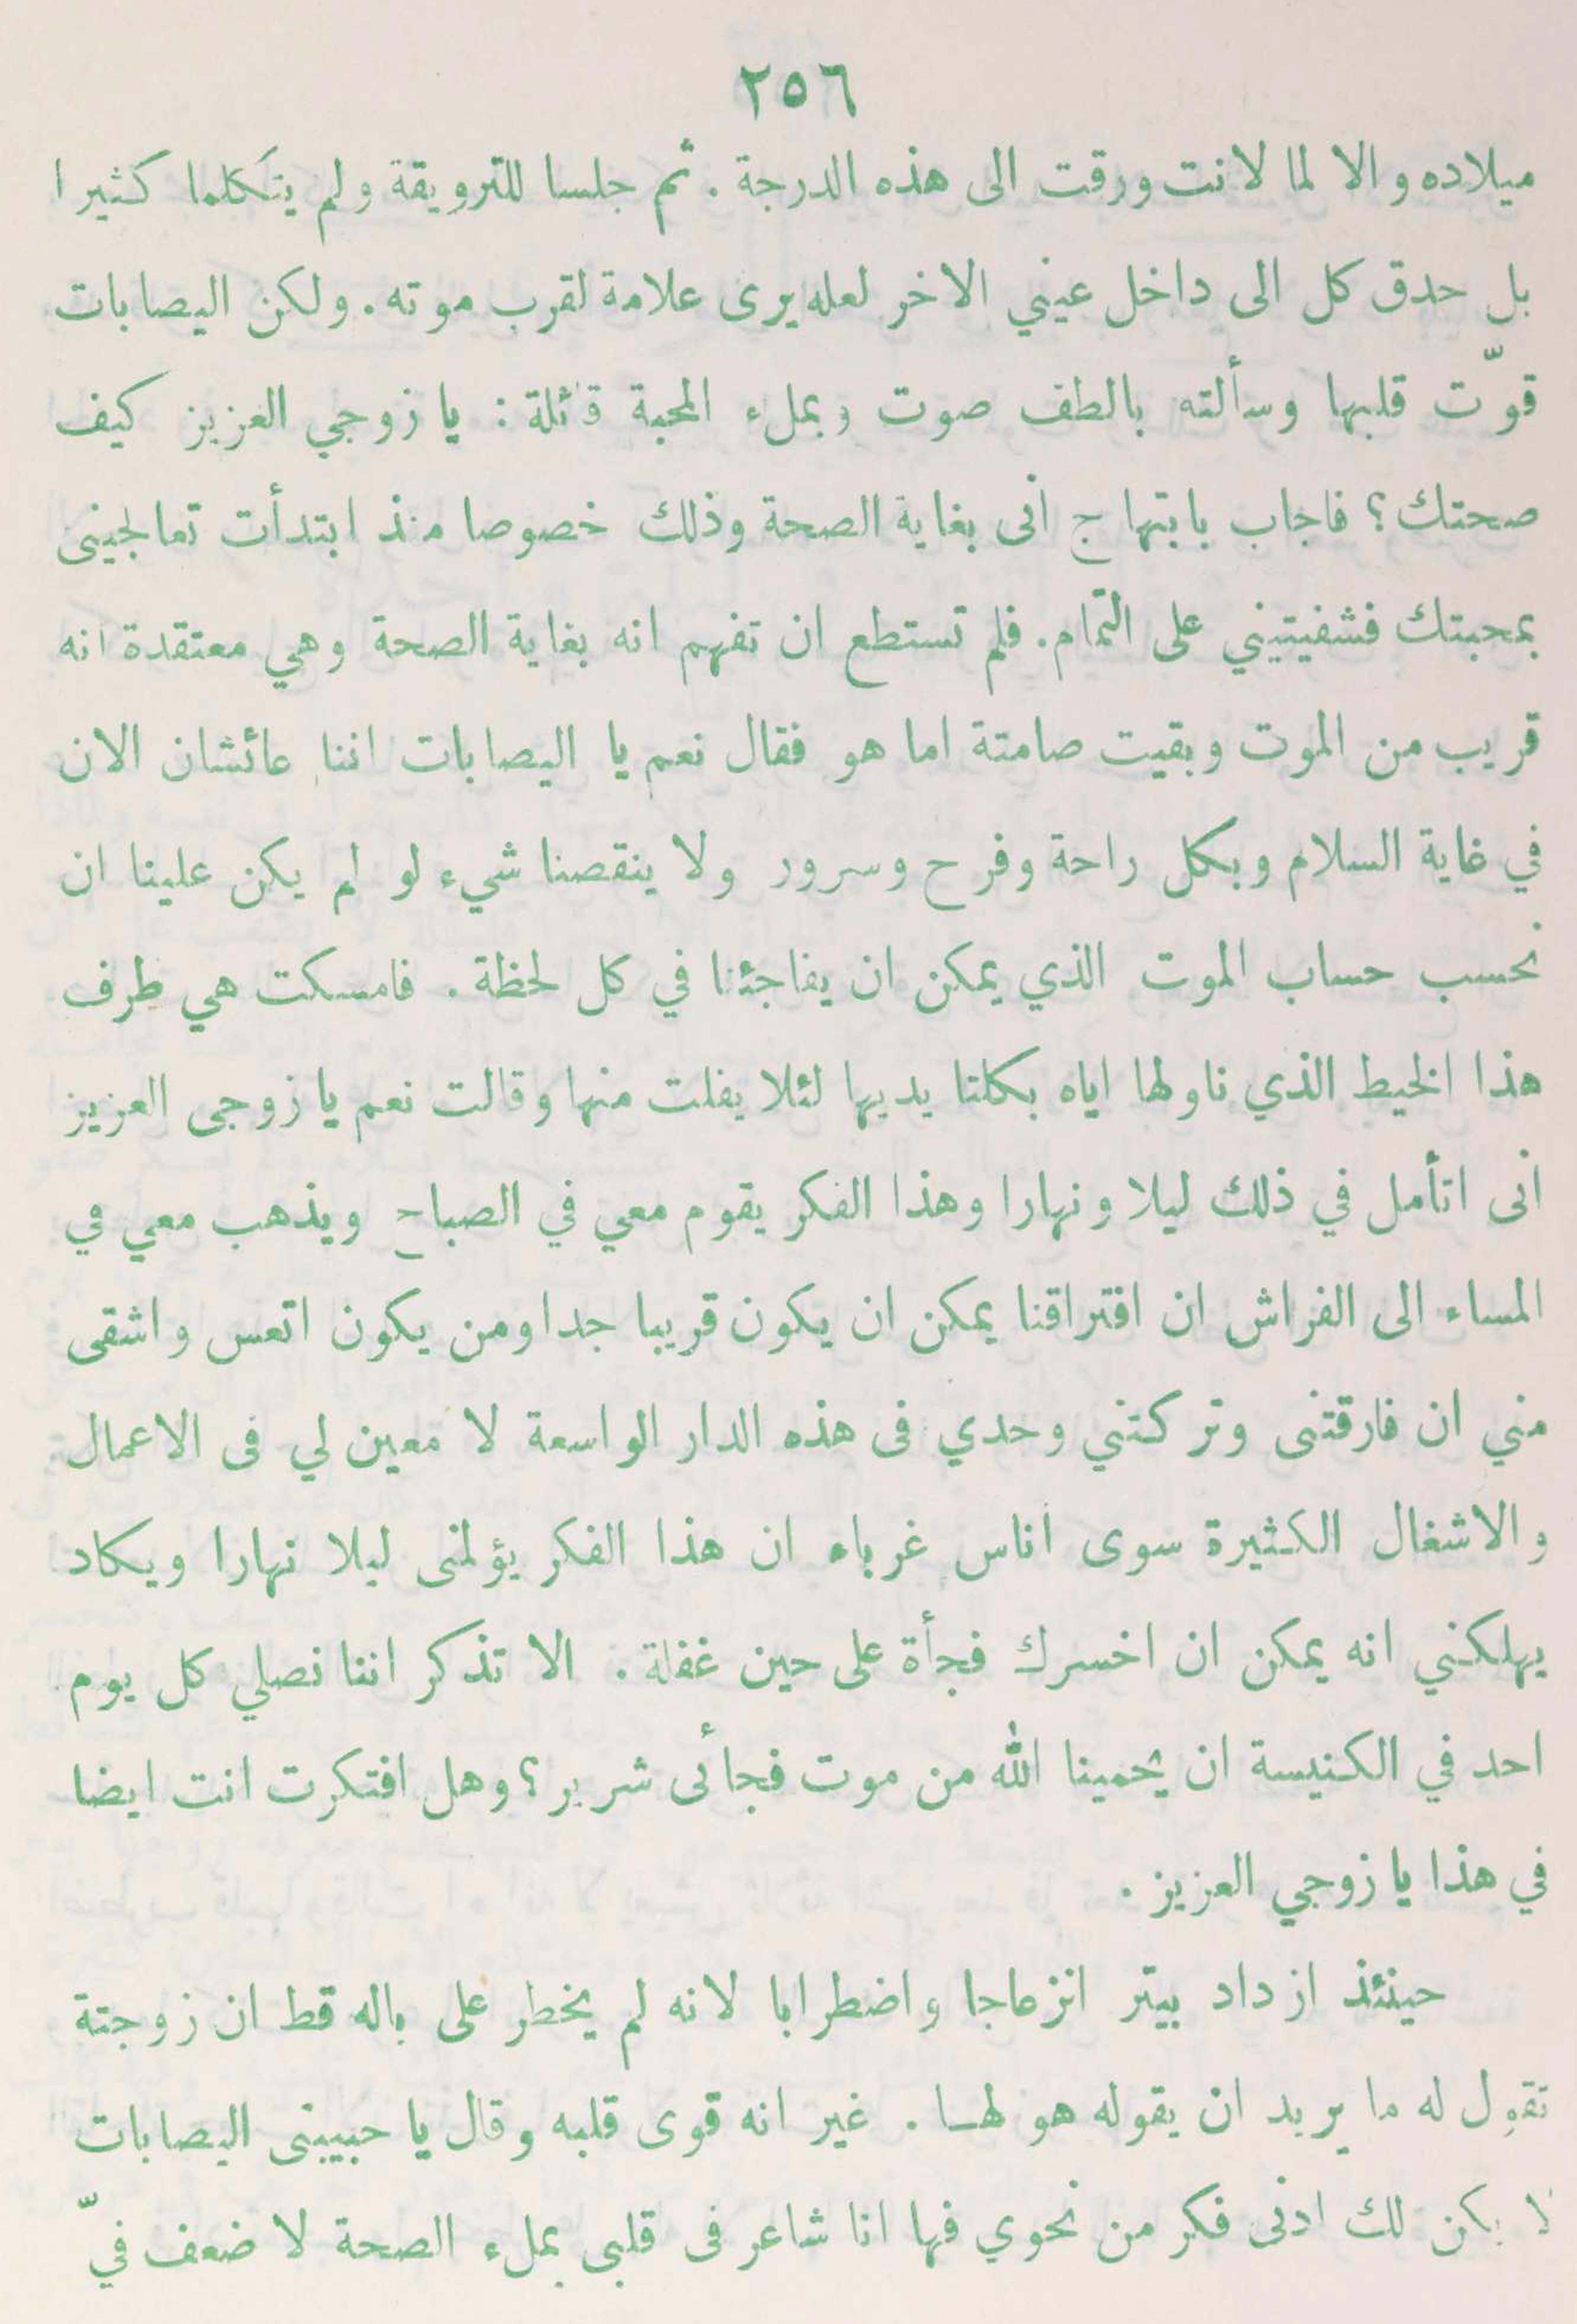 ٢٥٦
ميلاده والا لما لانت ورقت الى هذه الدرجة . ثم جلسا للترويقة ولم يتكلما كثيرا
بل حدق كل الى داخل عيني الاخر لعله يرى علامة لقرب موته . ولكن اليصابات
قوّت قلبها وسألته بالطف صوت وبملء المحبة قائلة : يا زوجي العزيز كيف
صحتك ؟ فاجاب بابتهاج انى بغاية الصحة وذلك خصوصا منذ ابتدأت تعالجينى
بمحبتك فشفيتيني على التمام . فلم تستطع ان تفهم انه بغاية الصحة وهي معتقدة انه
قريب من الموت وبقيت صامتة اما هو فقال نعم يا اليصابات اننا عائشان الان
في غاية السلام وبكل راحة وفرح وسرور ولا ينقصنا شيء لو لم يكن علينا ان
نحسب حساب الموت الذي يمكن ان يفاجئنا في كل لحظة . فامسكت هي طرف
هذا الخيط الذي ناولها اياه بكلتا يديها لئلا يفلت منها وقالت نعم يا زوجى العزيز
انى اتأمل في ذلك ليلا ونهارا وهذا الفكر يقوم معي في الصباح ويذهب معي في
المساء الى الفراش ان افتراقنا يمكن ان يكون قريبا جدا ومن يكون اتعس واشقى
مني ان فارقتنى وتركتني وحدي فى هذه الدار الواسعة لا معين لي فى الاعمال
والاشغال الكثيرة سوى اناس غرباء ان هذا الفكر يؤلمنى ليلا نهارا ويكاد
يهلكني انه يمكن ان اخسرك فجأة على حين غفلة . الا تذكر اننا نصلي كل يوم
احد في الكنيسة ان يحمينا الله من موت فجائى شرير ؟ وهل افتكرت انت ايضا
في هذا يا زوجي العزيز .
حينئذ ازداد بيتر انزعاجا واضطرابا لانه لم يخطر على باله قط ان زوجتة
تقول له ما يريد ان يقوله هو لها . غير انه قوى قلبه وقال يا حبيبتى اليصابات
لا يكن لك ادنى فكر من نحوي فها انا شاعر فى قلبى بملء الصحة لا ضعف فيّ